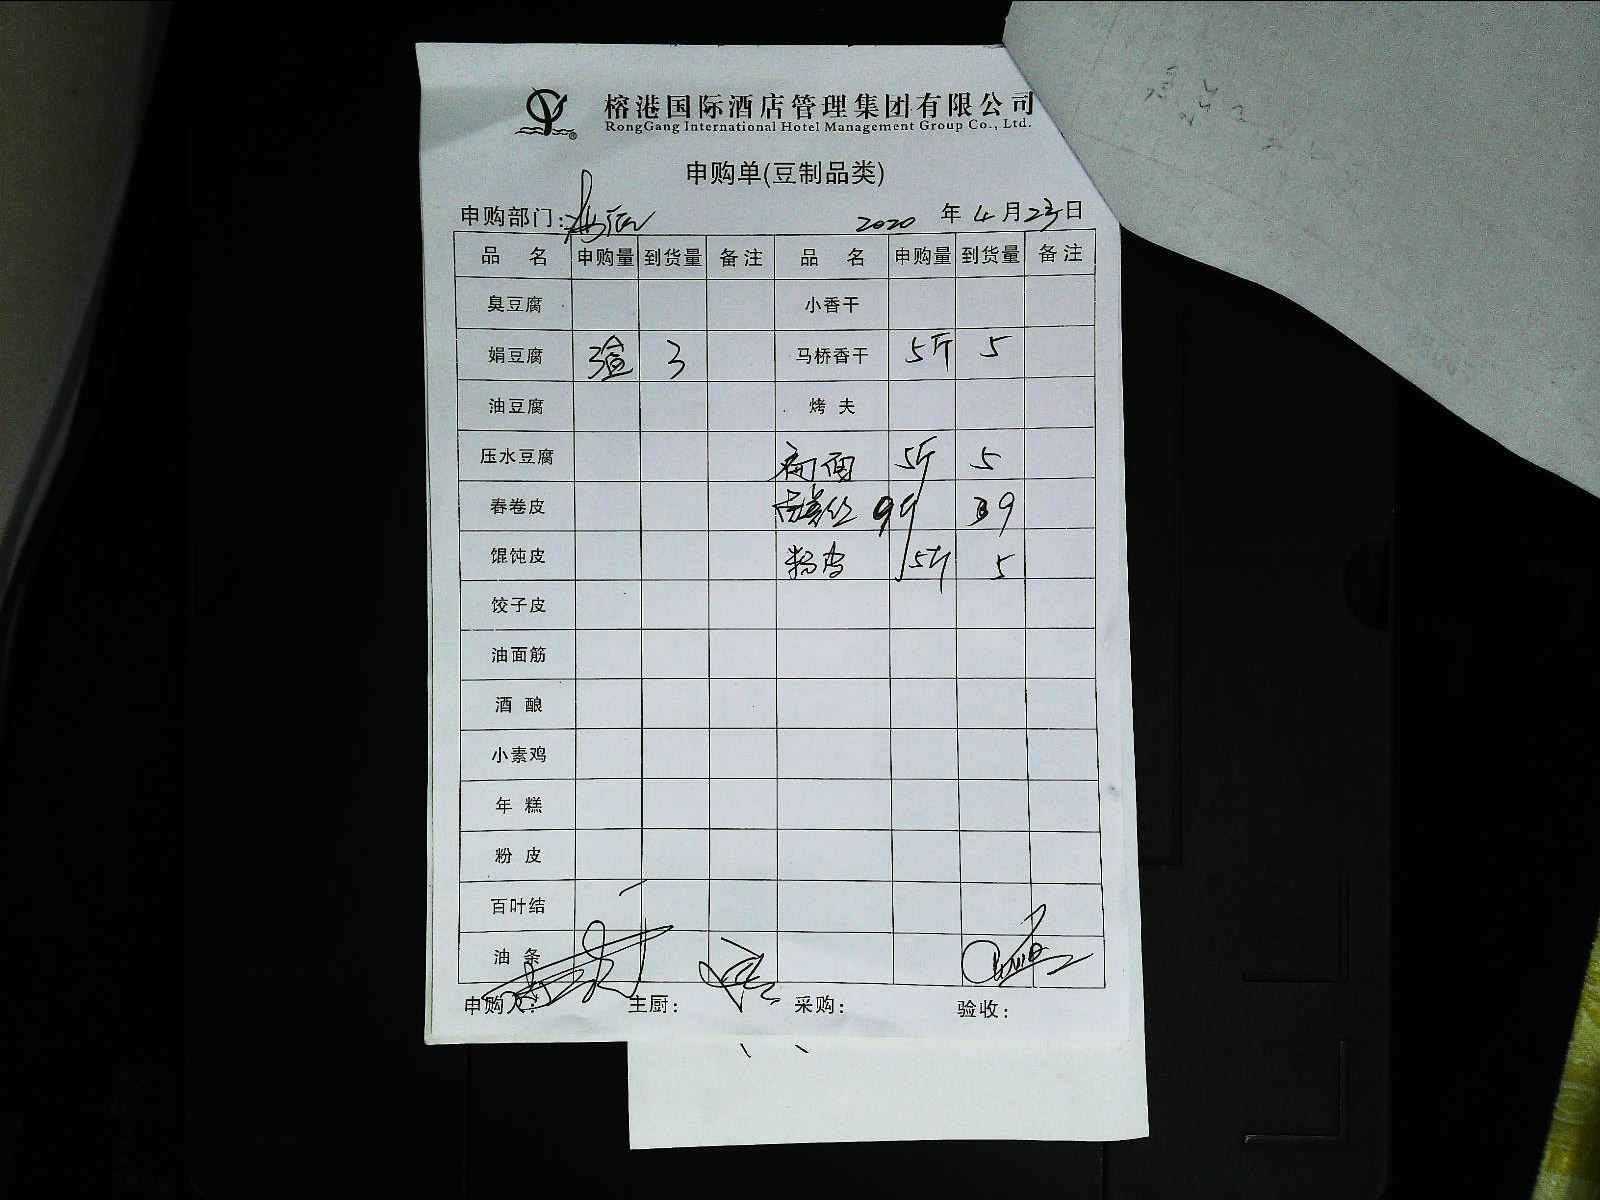 榕港国际酒店管理集团有限公司
RongGang International Hotel Management Group Co., Ltd.
申购单(豆制品类)
申购部门: 2020 年 4 月 23 日
品 名 申购量 到货量 备注 品 名 申购量 到货量 备注
臭豆腐 小香干
娟豆腐 3盒 3 马桥香干 5斤 5
油豆腐 烤 夫
压水豆腐 5斤 5
春卷皮 9斤 9
馄饨皮 粉皮 5斤 5
饺子皮
油面筋
酒 酿
小素鸡
年 糕
粉 皮
百叶结
油 条
申购人: 主厨: 采购: 验收: